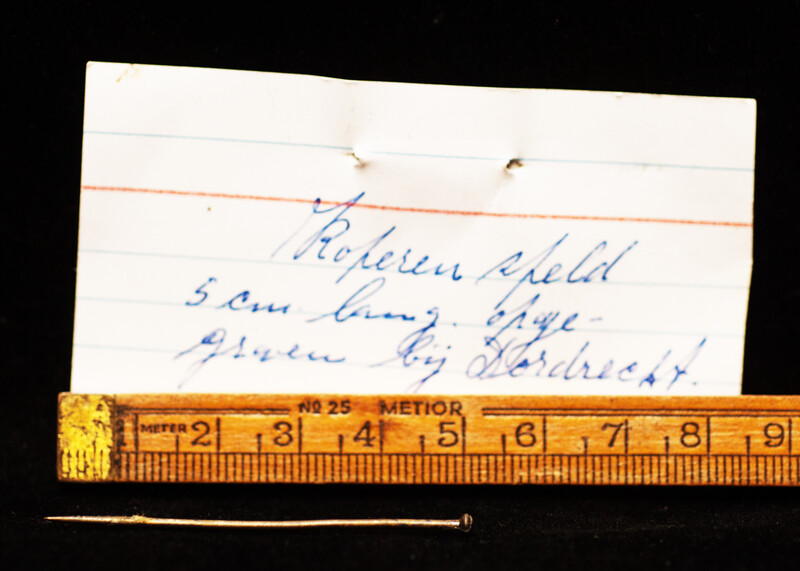 Koperen speld
5 cm lang. opge-
graven bij Dordrecht.
No 25 METIOR
METER 2 3 4 5 6 7 8 9